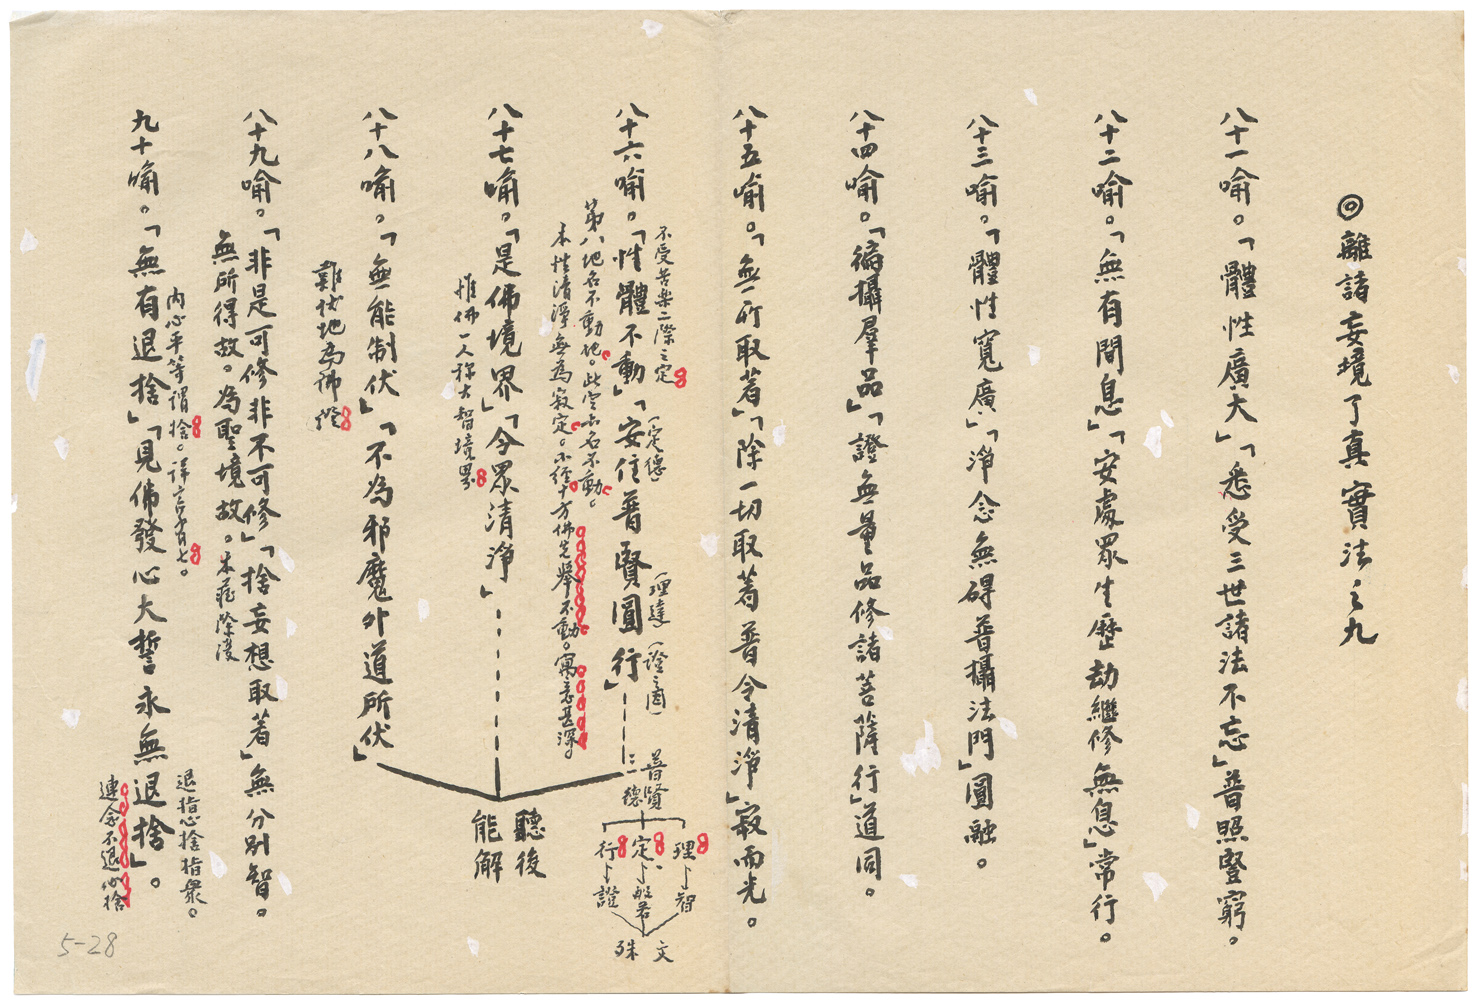 ◎離諸妄境了真實法之九
八十一喻。「體性廣大」「悉受三世諸法不忘」普照豎窮。
八十二喻。「無有間息」「安處眾生歷劫繼修無息」常行。
八十三喻。「體性寬廣」「淨念無碍普攝法門」圓融。
八十四喻。「徧攝羣品」「證無量品修諸菩薩行」道同。
八十五喻。「無所取著」「除一切取著普令清淨」寂而光。
不受苦樂二際之定
(定德
(理達
(證之圓)
八十六喻。「性體不動」「安住普賢圓行」
普賢
三德
理 定 行
智 般若 證
文殊
第八地名不動地。此定亦名不動。
本性清淨無為寂定。小經十方佛先舉不動。寓意甚深。
八十七喻。「是佛境界」「令眾清淨」
聽後
能解
惟佛一人称大智境界
八十八喻。「無能制伏」「不為邪魔外道所伏」
難伏地為佛燈
八十九喻。「非是可修非不可修」「捨妄想取著」無分別智。
無所得故。為聖境故。未庇際後
內心平等謂捨。詳言有七。
退指心捨指眾。
九十喻。「無有退捨」「見佛發心大誓永無退捨」。
連念不退似捨
5-28